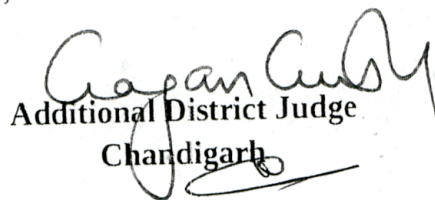 Additional District Judge
Chandigarh